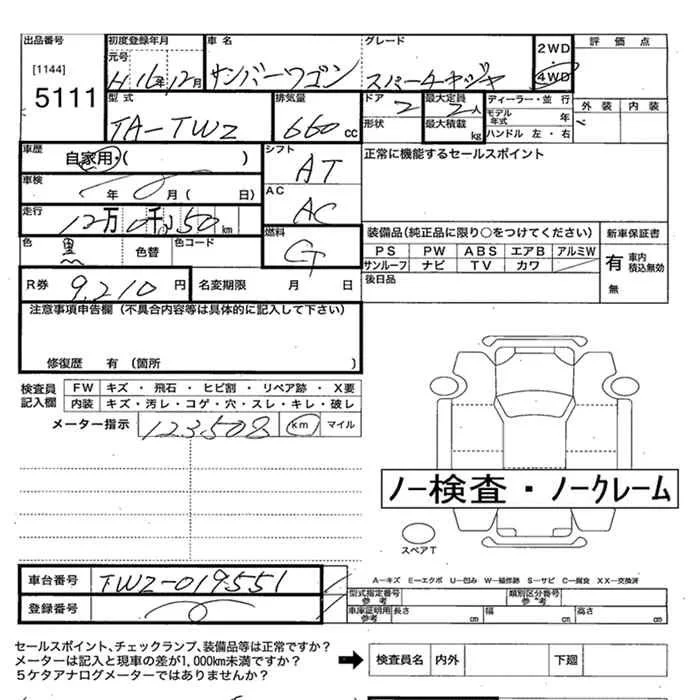 出品番号 初度登録年月 車名 グレード 2WD 評価点
[1144] 元号 H16年12月 サンバーワゴン スーパーチャージャ 4WD
5111 型式 排気量 ドア 2 最大定員 2人 ディーラー・並行 外装 内装
TA-TW2 660cc 形状 最大積載 kg モデル年式 年 ハンドル 左・右
車歴 自家用・( ) シフト AT 正常に機能するセールスポイント
車検 年 月( 日) AC AC
走行 12万0千 50km 燃料 装備品(純正品に限り○をつけてください) 新車保証書
色 黒 色替 色コード PS PW ABS エアB アルミW 有 車内積込無効
サンルーフ ナビ TV カワ 無
R券 9,210円 名変期限 月 日 後日品
注意事項申告欄(不具合内容等は具体的に記入して下さい)
修復歴 有(箇所 )
検査員記入欄 FW キズ・飛石・ヒビ割・リペア跡・X要
内装 キズ・汚レ・コゲ・穴・スレ・キレ・破レ
メーター指示 123508 km マイル
ノー検査・ノークレーム
スペアT
車台番号 TW2-019551 A―キズ E―エクボ U―凹み W―補修跡 S―サビ C―腐食 XX―交換済
登録番号 型式指定番号 参考 類別区分番号 参考
車庫証明用参考 長さ cm 幅 cm 高さ cm
セールスポイント、チェックランプ、装備品等は正常ですか?
メーターは記入と現車の差が1,000km未満ですか? ➡ 検査員名 内外 下廻
5ケタアナログメーターではありませんか?